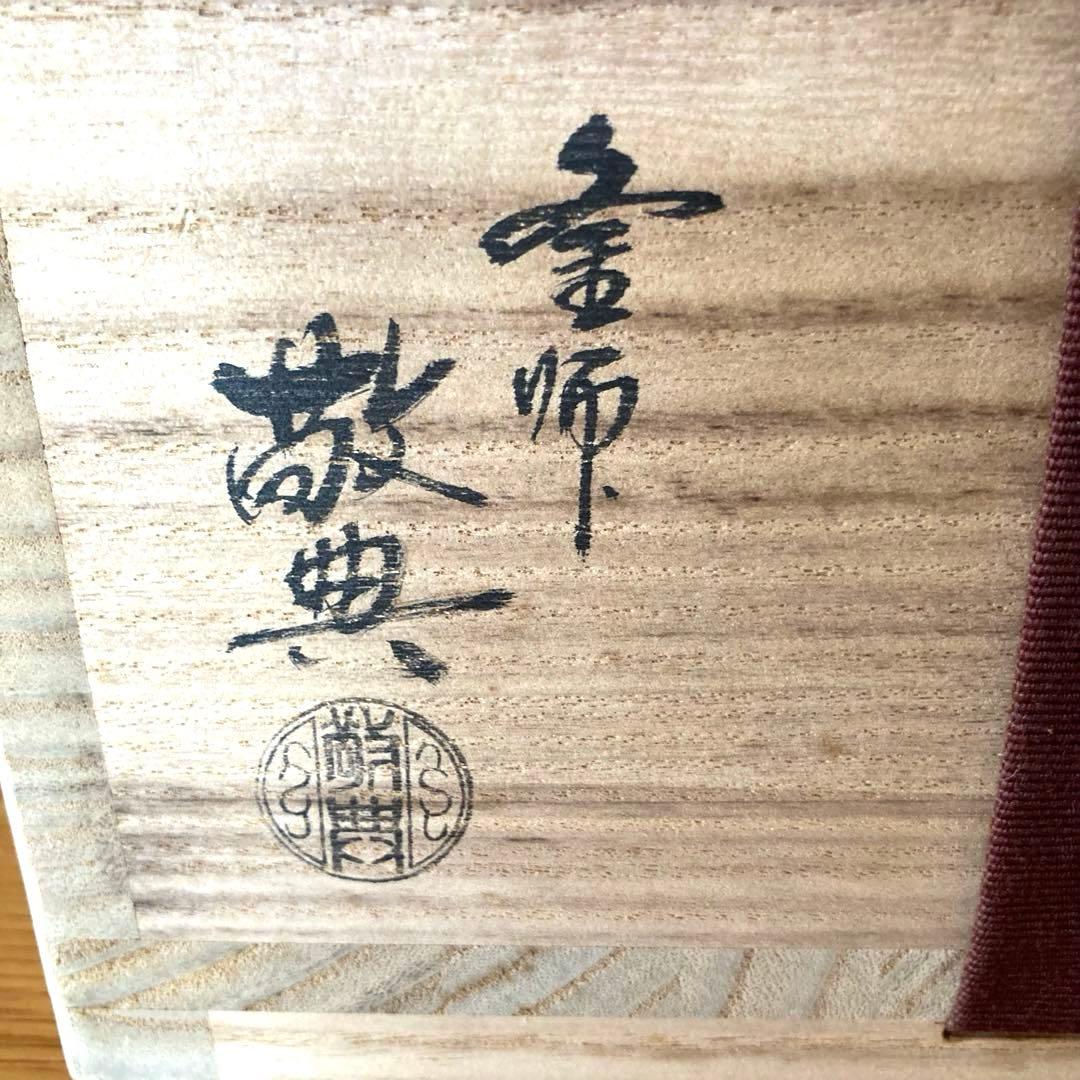 釜師
敬典
敬典